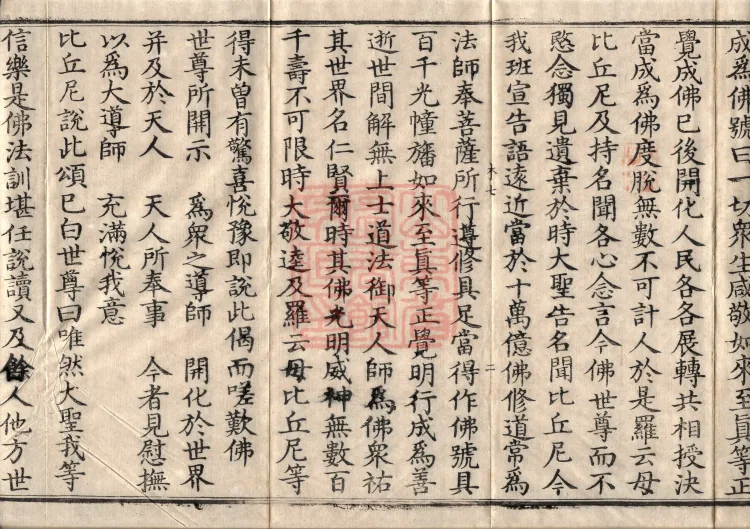 成爲佛號曰一切衆生咸敬如來至眞等正
覺成佛已後開化人民各各展轉共相授決
當成爲佛度脫無數不可計人於是羅云母
比丘尼及持名聞各心念言今佛世尊而不
愍念獨見遺棄於時大聖告名聞比丘尼今
我班宣告語遠近當於十萬億佛修道常爲
法師奉菩薩所行遵修具足當得作佛號具
百千光幢旛如來至眞等正覺明行成爲善
逝世間解無上士道法御天人師爲佛衆祐
其世界名仁賢爾時其佛光明威神無數百
千壽不可限時大敬逵及羅云母比丘尼等
得未曾有驚喜悅豫即說此偈而嗟歎佛
世尊所開示　爲衆之導師　開化於世界
并及於天人　天人所奉事　今者見慰撫
以爲大導師　充滿悅我意
比丘尼說此頌已白世尊曰唯然大聖我等
信樂是佛法訓堪任說讀又及餘人他方世